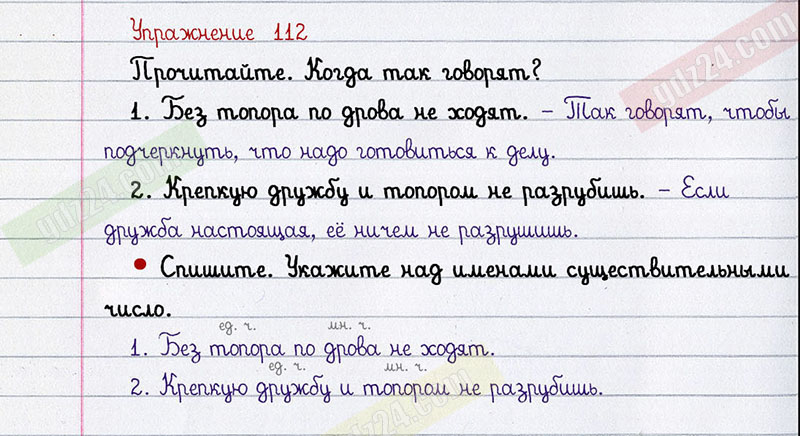 Упражнение 112
Прочитайте. Когда так говорят?
1. Без топора по дрова не ходят. – Так говорят, чтобы
подчеркнуть, что надо готовиться к делу.
2. Крепкую дружбу и топором не разрубишь. – Если
дружба настоящая, её ничем не разрушишь.
• Спишите. Укажите над именами существительными
число.
ед. ч. мн. ч.
1. Без топора по дрова не ходят.
ед. ч. мн. ч.
2. Крепкую дружбу и топором не разрубишь.
gdz24.com
gdz24.com
gdz24.com